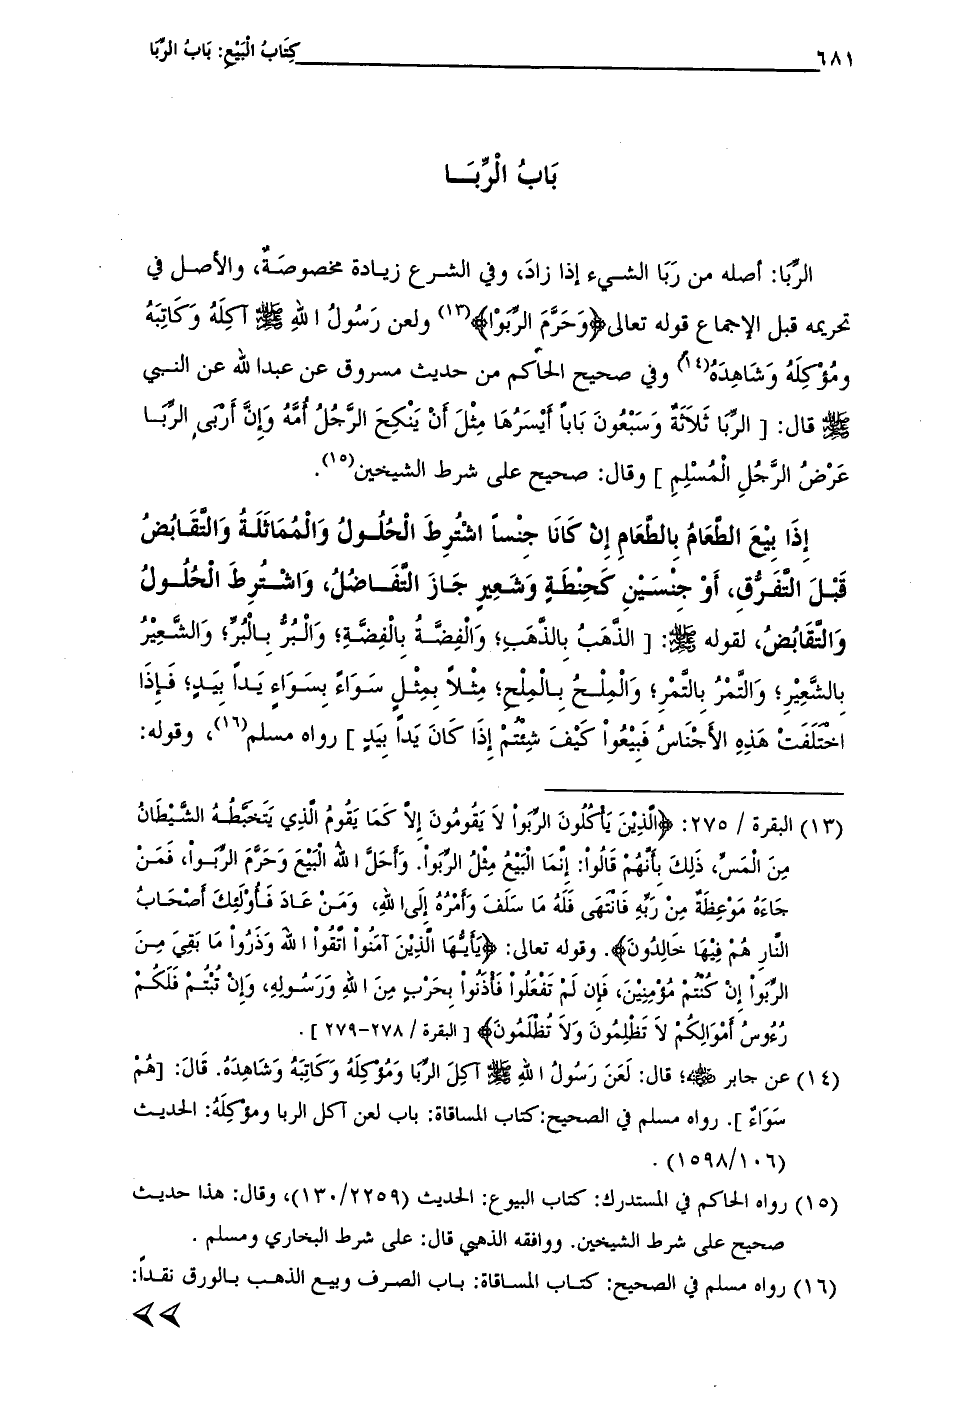 ٦٨١ كِتَابُ الْبَيْعِ: بَابُ الرِّبَا
بَابُ الْرِّبَـــا
الرِّبَا: أصله من رَبَا الشيء إذا زادَ، وفي الشرع زيادة مخصوصَـةٌ، والأصل في
تحريمه قبل الإجماع قوله تعالى﴿وَحَرَّمَ الرِّبَوْا﴾(١٣) ولعن رَسُولُ اللهِ ﷺ آكِلَهُ وَكَاتِبَهُ
ومُؤْكِلَهُ وَشَاهِدَهُ(١٤) وفي صحيح الحاكم من حديث مسروق عن عبدا لله عن النبي
ﷺ قال: [ الرِّبَا ثَلاَثَةٌ وَسَبْعُونَ بَاباً أَيْسَرُهَا مِثْلَ أَنْ يَنْكِحَ الرَّجُلُ أُمَّهُ وَإِنَّ أَرْبَى الرِّبَـا
عَرَضُ الرَّجُلِ الْمُسْلِمِ ] وقال: صحيح على شرط الشيخين(١٥).
إِذَا بِيْعَ الطَّعَامُ بِالطَّعَامِ إِنْ كَانَا جِنْساً اشْتُرِطَ الْحُلُـولُ وَالْمُمَاثَلَـةُ وَالتَّقَـابُضُ
قَبْلَ التَّفَـرُّقِ، أَوْ جِنْسَيْنِ كَحِنْطَةٍ وَشَعِيرٍ جَازَ التَّفَـاضُلُ، وَاشْـتُرِطَ الْحُلُـولُ
وَالتَّقَابُضُ، لقوله ﷺ: [ الذَّهَبُ بالذَّهَبِ؛ وَالْفِضَّـةُ بِالْفِضَّةِ؛ وَالْبُرُّ بِـالْبُرِّ؛ وَالشَّعِيْرُ
بالشَّعِيْرِ؛ وَالتَّمْرُ بالتَّمْرِ؛ وَالْمِلْـحُ بِـالْمِلْحِ؛ مِثْـلاً بِمِثْـلٍ سَـوَاءً بِسَـوَاءٍ يَـداً بِيَـدٍ؛ فَـإِذَا
اخْتَلَفَتْ هَذِهِ الأَجْنَاسُ فَبِيْعُواْ كَيْفَ شِئْتُمْ إِذَا كَانَ يَداً بِيَدٍ ] رواه مسلم(١٦)، وقوله:
(١٣) البقرة / ٢٧٥: ﴿الَّذِيْنَ يَأْكُلُونَ الرِّبَواْ لاَ يَقُومُونَ إِلاَّ كَمَا يَقُومُ الَّذِي يَتَخَبَّطُـهُ الشَّيْطَانُ
مِنَ الْمَسِّ، ذَلِكَ بِأَنَّهُمْ قَالُواْ: إِنَّمَا الْبَيْعُ مِثْلُ الرِّبَواْ. وَأَحَلَّ اللهُ الْبَيْعَ وَحَرَّمَ الرِّبَـواْ، فَمَـنْ
جَاءَهُ مَوْعِظَةٌ مِنْ رَبِّهِ فَانْتَهَى فَلَهُ مَا سَلَفَ وَأَمْرُهُ إِلَى اللهِ، وَمَـنْ عَـادَ فَـأُوْلَئِكَ أَصْحَـابُ
النَّارِ هُمْ فِيْهَا خَالِدُونَ﴾. وقوله تعالى: ﴿يَأَيُّـهَا الَّذِيْنَ آمَنُواْ اتَّقُواْ اللهَ وَذَرُواْ مَا بَقِيَ مِـنَ
الرِّبَواْ إِنْ كُنْتُمْ مُؤْمِنِيْنَ، فَإِن لَمْ تَفْعَلُواْ فَأْذَنُواْ بِحَرْبٍ مِنَ اللهِ وَرَسُـولِهِ، وَإِنْ تُبْتُـمْ فَلَكُـمْ
رُءُوسُ أَمْوَالِكُمْ لاَ تَظْلِمُونَ وَلاَ تُظْلَمُونَ﴾ [ البقرة / ٢٧٨-٢٧٩ ] .
(١٤) عن جابر ﷺ؛ قال: لَعَنَ رَسُولُ اللهِ ﷺ آكِلَ الرِّبَا وَمُؤْكِلَهُ وَكَاتِبَهُ وَشَاهِدَهُ. قَالَ: [هُمْ
سَوَاءٌ ]. رواه مسلم في الصحيح:كتاب المساقاة: باب لعن آكل الربا ومؤكِلَهُ: الحديث
(١٥٩٨/١٠٦) .
(١٥) رواه الحاكم في المستدرك: كتاب البيوع: الحديث (١٣٠/٢٢٥٩)، وقال: هذا حديث
صحيح على شرط الشيخين. ووافقه الذهبي قال: على شرط البخاري ومسلم .
(١٦) رواه مسلم في الصحيح: كتـاب المسـاقاة: بـاب الصرف وبيع الذهب بـالورق نقـداً: